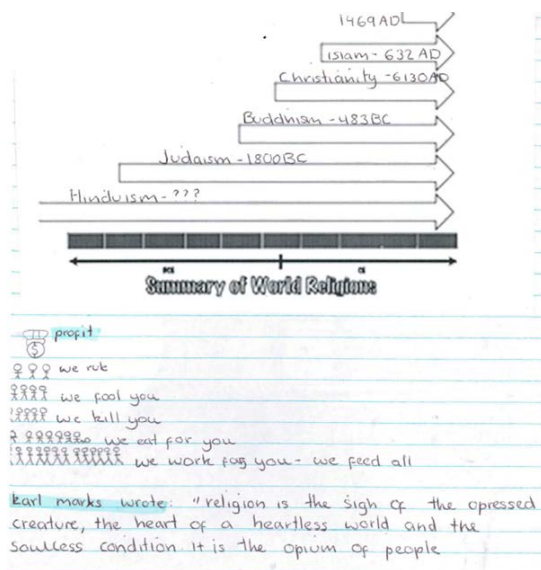 1469AD
Islam - 632 AD
Christianity - 6130AD
Buddhism - 483BC
Judaism - 1800BC
Hinduism - ???
BCE CE
Summary of World Religions
profit
$
we rule
we fool you
we kill you
we eat for you
we work for you - we feed all
karl marks wrote: "religion is the sigh of the opressed
creature, the heart of a heartless world and the
soulless condition it is the opium of people